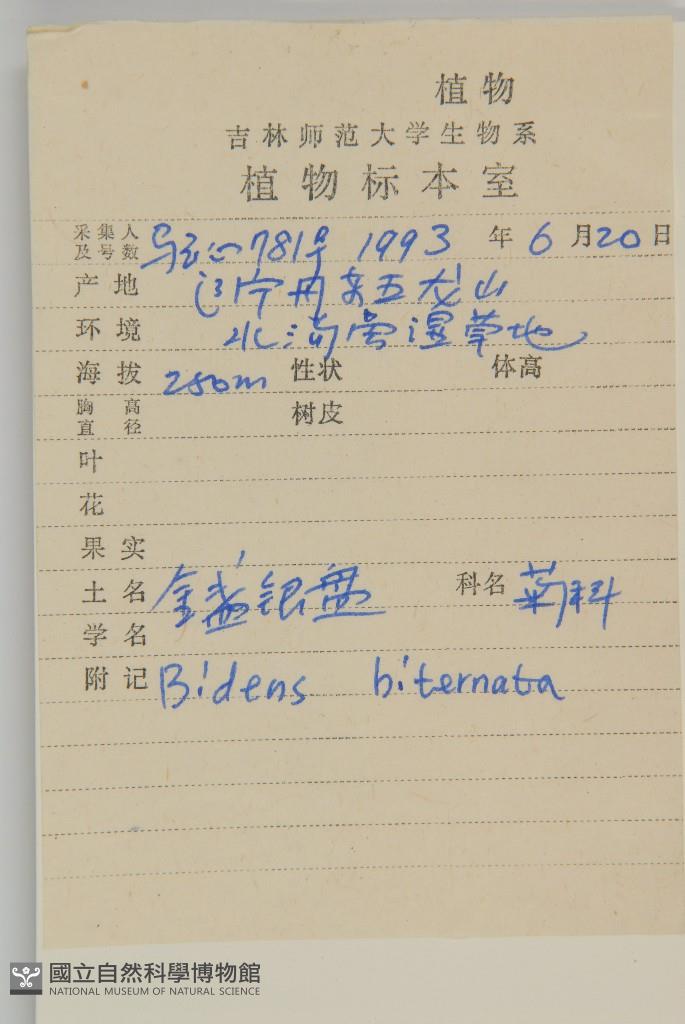 植物
吉林师范大学生物系
植物标本室
采集人及号数 781号 1993年6月20日
产地 辽宁丹东五龙山
环境 水沟旁湿草地
海拔 250m 性状 体高
胸高直径 树皮
叶
花
果实
土名 金盏银盘 科名 菊科
学名
附记 Bidens biternata
國立自然科學博物館
NATIONAL MUSEUM OF NATURAL SCIENCE